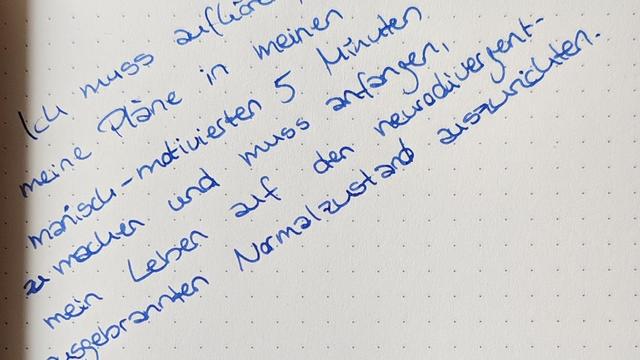 Ich muss aufhören,
meine Pläne in meinen
manisch-motivierten 5 Minuten
zu machen und muss anfangen,
mein Leben auf den neurodivergent-
ausgebrannten Normalzustand auszurichten.